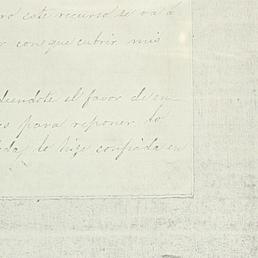 ro este recurso se va á
r con que cubrir mis
diendote el favor de en_
os para reponer lo
da, lo hize confiada en